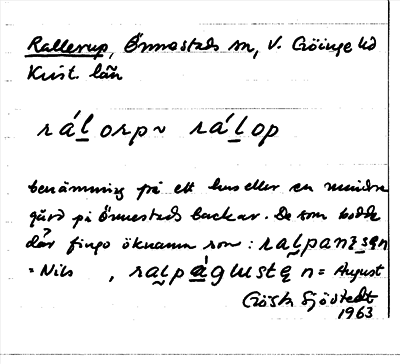 Rallerup, Önnestads sn, V. Göinge hd
Krist. län
rál̲orp ~ rál̲op
benämning på ett hus eller en mindre
gård på Önnestads backar. De som bodde
där fingo öknamn som: ralpanisen
= Nils , ralpágusten = August
Gösta Sjöstedt
1963